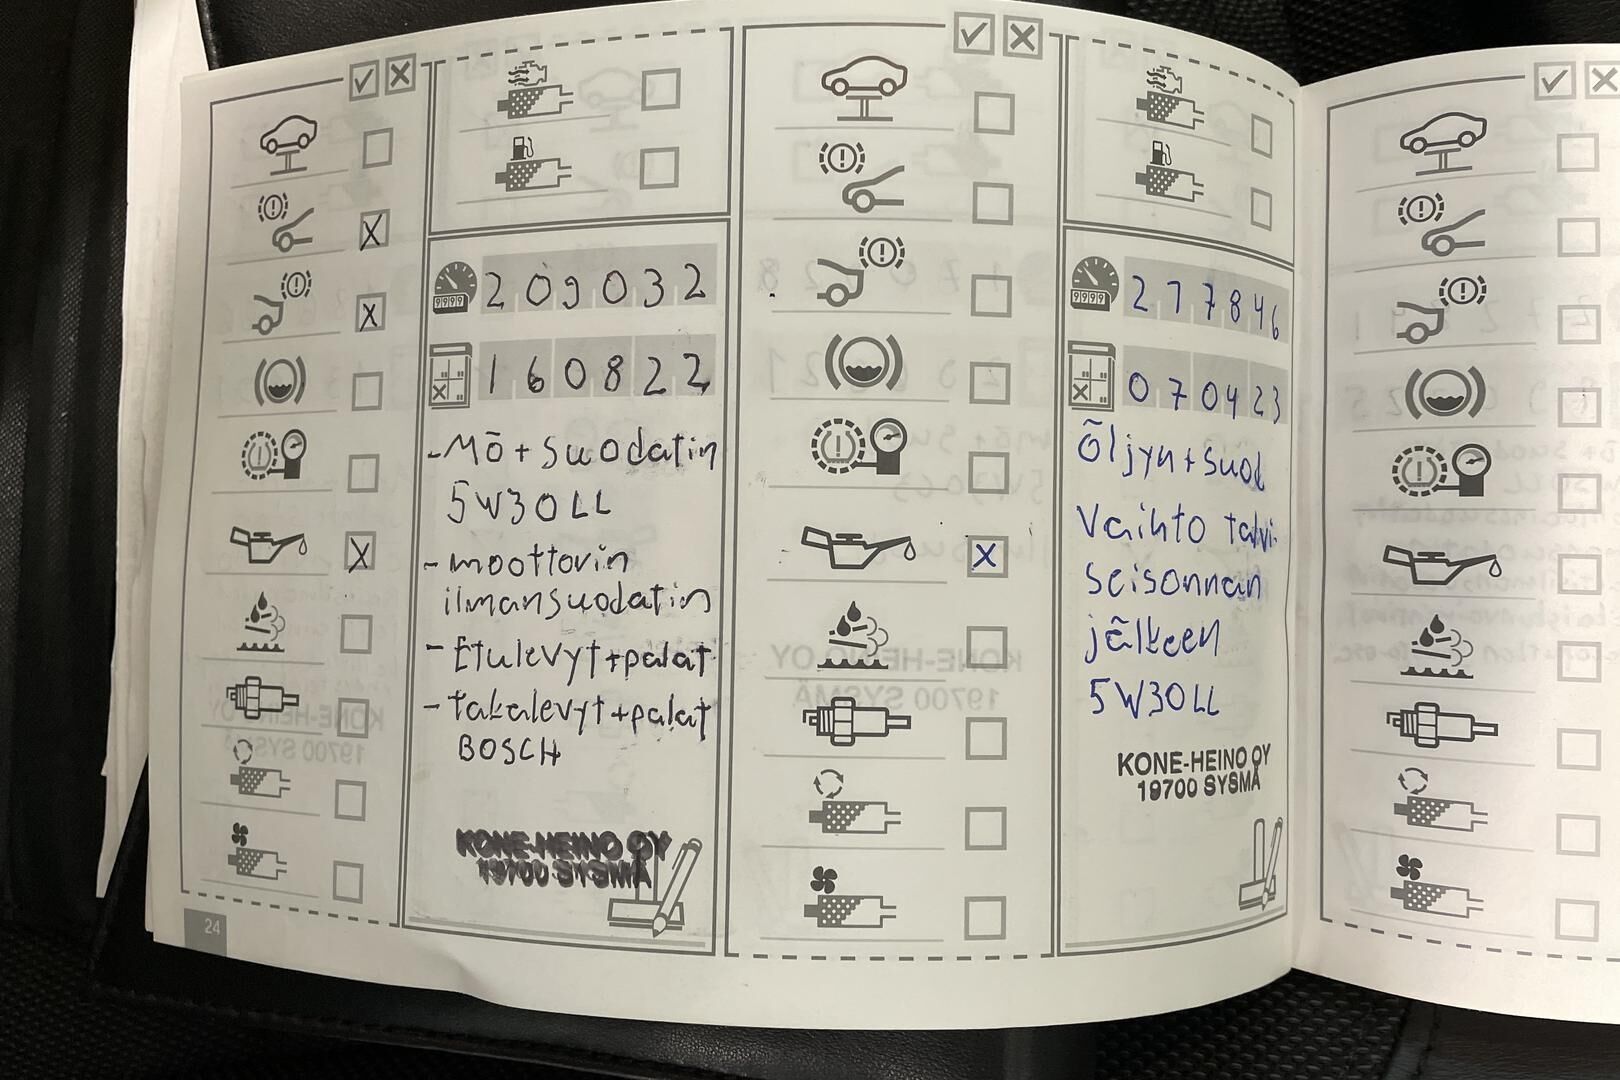 209032
160822
- Mö + suodatin
5W30LL
- moottorin
ilmansuodatin
- Etulevyt+palat
- takalevyt+palat
BOSCH
KONE-HEINO OY
19700 SYSMÄ
24
277846
070423
Öljyn+suod
Vaihto talvi
seisonnan
jälkeen
5W30LL
KONE-HEINO OY
19700 SYSMÄ